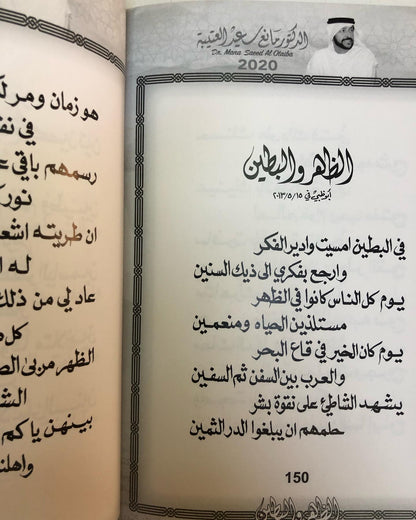 الدكتور مانع سعيد العتيبة
Dr. Mana Saeed Al Otaiba
2020
الظاهر والبطين
أبوظبي في ٢٠١٣/٥/١٥
في البطين امسيت وادير الفكر
وارجع بفكري الى ذيك السنين
يوم كل الناس كانوا في الظهر
مستلذين الحياه ومنعمين
يوم كان الخير في قاع البحر
والعرب بين السفن ثم السفين
يشهد الشاطئ على نقوة بشر
حلمهم ان يبلغوا الدر الثمين
150
الظاهر والبطين
هو زمان ومر
في
رسمهم باقي
ان طريته
له
عاد لي من ذلك
الظهر مربى
بينهن يا كم